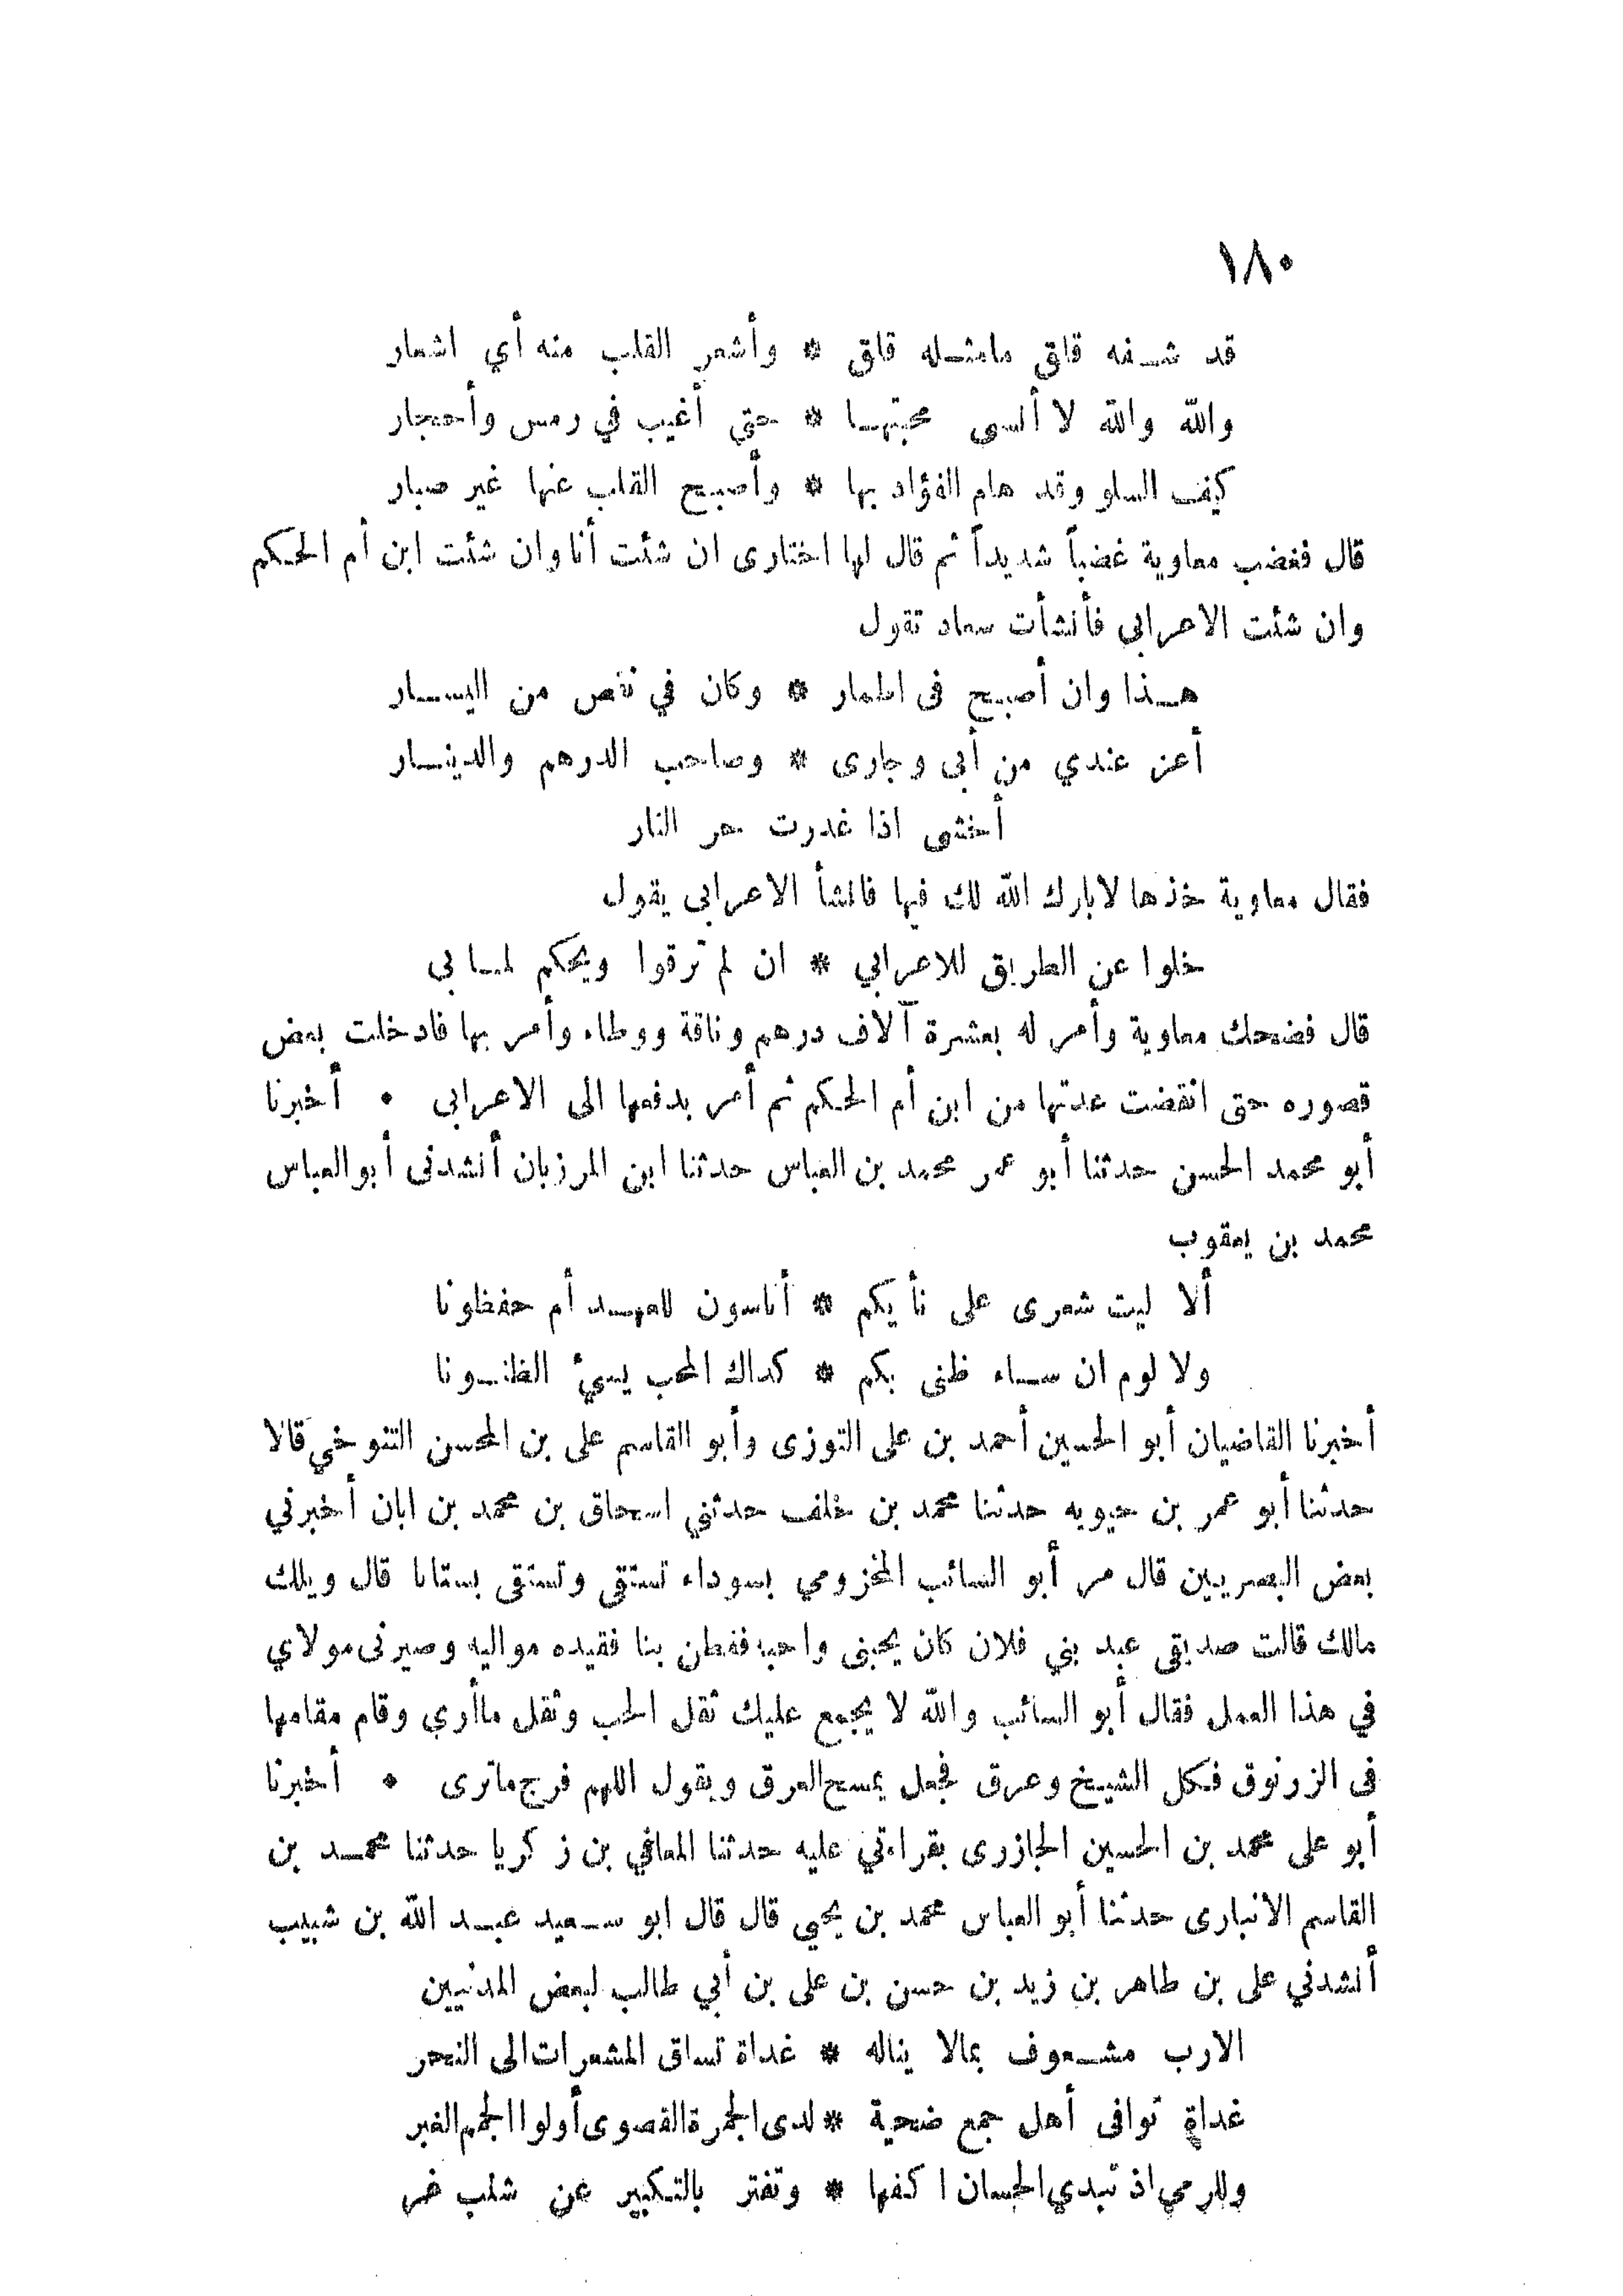 ١٨٠
قد شفه قلق مامثله قلق * وأشعر القلب منه أي اشعار
والله والله لا أنسى محبتها * حتى أغيب في رمس وأحجار
كيف السلو وقد هام الفؤاد بها * وأصبح القلب عنها غير صبار
قال فغضب معاوية غضباً شديداً ثم قال لها اختارى ان شئت أنا وان شئت ابن أم الحكم
وان شئت الاعرابى فأنشأت سعاد تقول
هذا وان أصبح فى اطمار * وكان في نقص من اليسار
أعز عندي من أبى وجارى * وصاحب الدرهم والدينار
أخشى اذا غدرت حر النار
فقال معاوية خذها لابارك الله لك فيها فانشأ الاعرابى يقول
خلوا عن الطريق للاعرابي * ان لم ترقوا ويحكم لما بى
قال فضحك معاوية وأمر له بعشرة آلاف درهم وناقة ووطاء وأمر بها فادخلت بعض
قصوره حتى انقضت عدتها من ابن أم الحكم ثم أمر بدفعها الى الاعرابى • أخبرنا
أبو محمد الحسن حدثنا أبو عمر محمد بن العباس حدثنا ابن المرزبان أنشدنى أبو العباس
محمد بن يعقوب
ألا ليت شعرى على نأيكم * أناسون للعهد أم حفظونا
ولا لوم ان ساء ظنى بكم * كداك المحب يسيئ الظنونا
أخبرنا القاضيان أبو الحسين أحمد بن على التوزى وأبو القاسم على بن المحسن التنوخي قالا
حدثنا أبو عمر بن حيويه حدثنا محمد بن خلف حدثني اسحاق بن محمد بن ابان أخبرني
بعض البصريين قال مر أبو السائب المخزومي بسوداء تستقى وتستقى بستانا قال ويلك
مالك قالت صديقى عبد بني فلان كان يحبنى واحبه ففطن بنا فقيده مواليه وصيرنى مولاي
في هذا العمل فقال أبو السائب والله لا يجمع عليك ثقل الحب وثقل ماأري وقام مقامها
فى الزرنوق فكل الشيخ وعرق فجعل يمسح العرق ويقول اللهم فرج ماترى • أخبرنا
أبو على محمد بن الحسين الجازرى بقراءتي عليه حدثنا المعافي بن زكريا حدثنا محمد بن
القاسم الانبارى حدثنا أبو العباس محمد بن يحيي قال قال ابو سعيد عبد الله بن شبيب
أنشدني على بن طاهر بن زيد بن حسن بن على بن أبي طالب لبعض المدنيين
الارب مشعوف بمالا يناله * غداة تساق المشعرات الى النحر
غداة توافى أهل جمع ضحية * لدى الجمرة القصوى أولوا الجمم الغبر
وللرمي اذ تبدي الحسان اكفها * وتفتر بالتكبير عن شنب غر